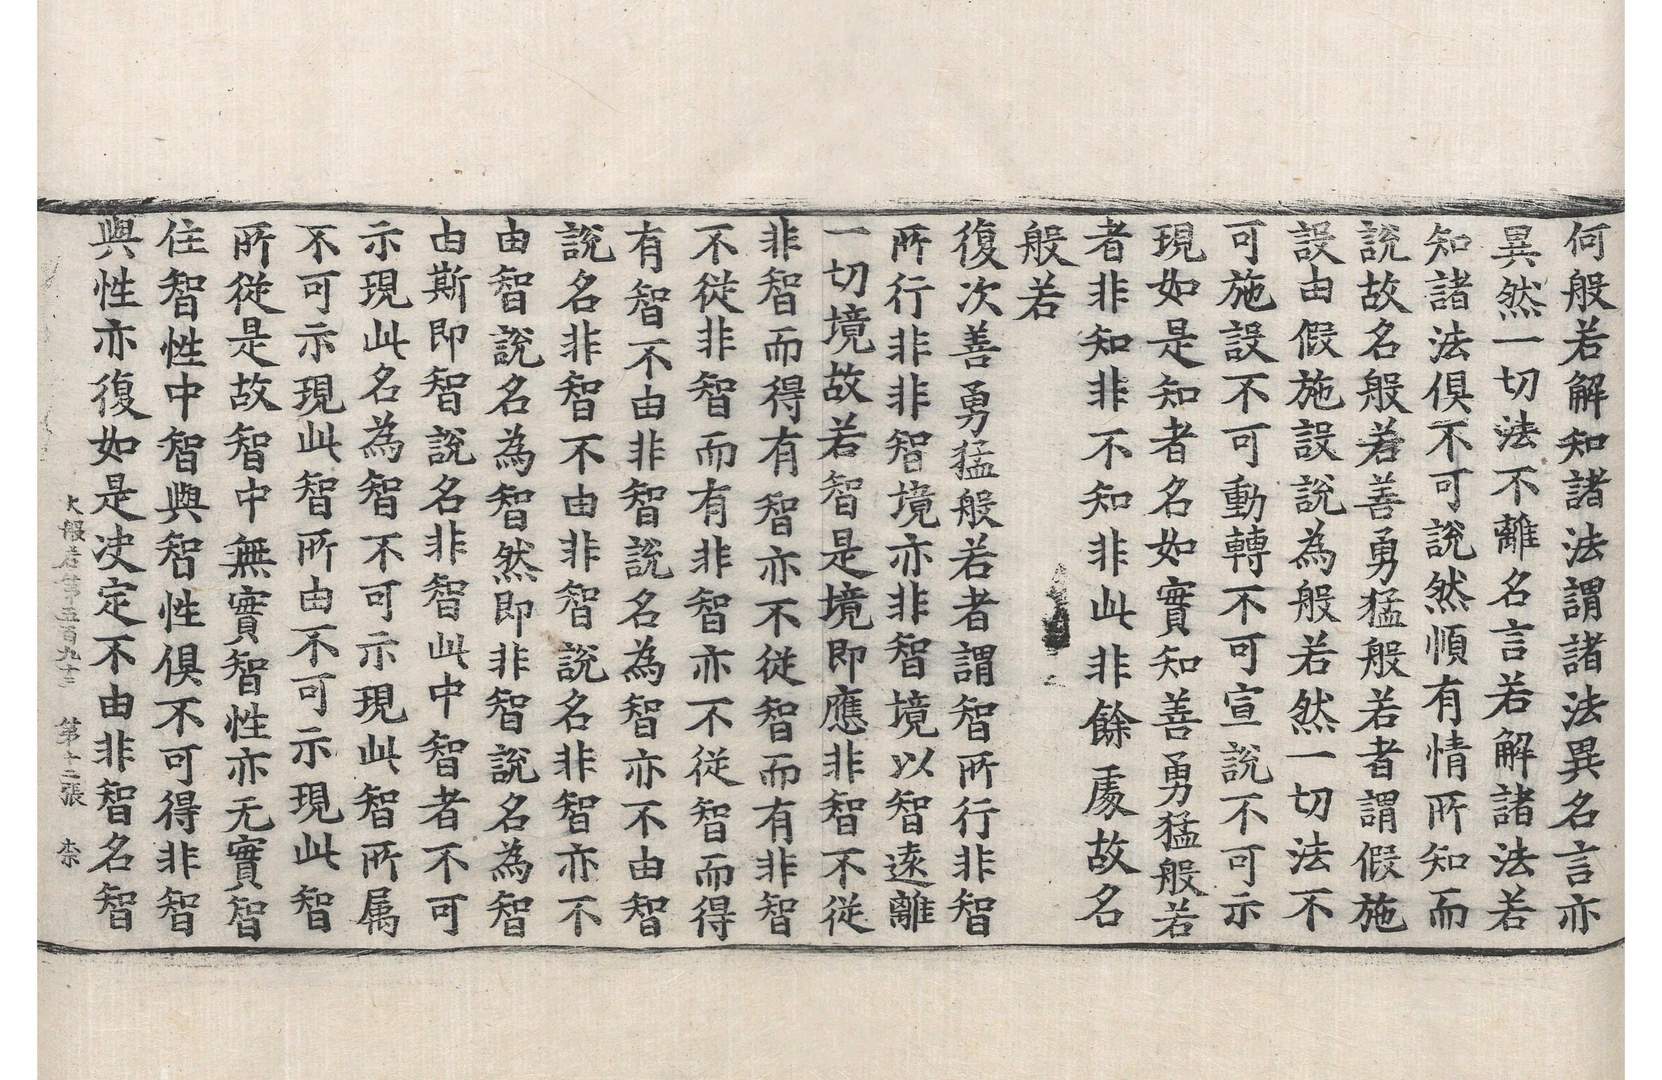 何般若解知諸法謂諸法異名言亦
異然一切法不離名言若解諸法若
知諸法俱不可說然順有情所知而
說故名般若善勇猛般若者謂假施
設由假施設說為般若然一切法不
可施設不可動轉不可宣說不可示
現如是知者名如實知善勇猛般若
者非知非不知非此非餘處故名
般若
復次善勇猛般若者謂智所行非智
所行非非智境亦非智境以智遠離
一切境故若智是境即應非智不從
非智而得有智亦不從智而有非智
不從非智而有非智亦不從智而得
有智不由非智說名為智亦不由智
說名非智不由非智說名非智亦不
由智說名為智然即非智說名為智
由斯即智說名非智此中智者不可
示現此名為智不可示現此智所属
不可示現此智所由不可示現此智
所從是故智中無實智性亦无實智
住智性中智與智性俱不可得非智
與性亦復如是决定不由非智名智
大般若第五百九十三 第十二張 柰